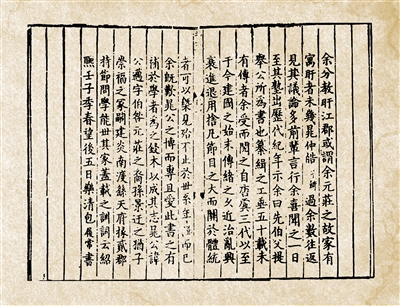 余分教盱江郡或謂余元莊之故家有
寓盱者未幾晁仲皓過余數往返
見其議論多前輩言行余喜聞之一日
至其塾出歷代紀年示余曰先伯父提
舉公所為書也纂緝之工垂五十載未
有傳者余受而閱之自唐虞三代以至
于今建國之始末傳緒之久近治亂興
衰進退用捨凡節目之大而關於體統
者可以槩見殆不止於世系年運而已
余旣歎晁公之博而專且愛此書之有
補於學者為之鋟木以成其志晁公諱
公邁字伯元莊之裔孫景迂之猶子
崇福之冢嗣建炎南渡錄天府掾貳郡
持節問學能世其家蓋載之訓詞云紹
熙壬子季春望後五日樂清包履常書